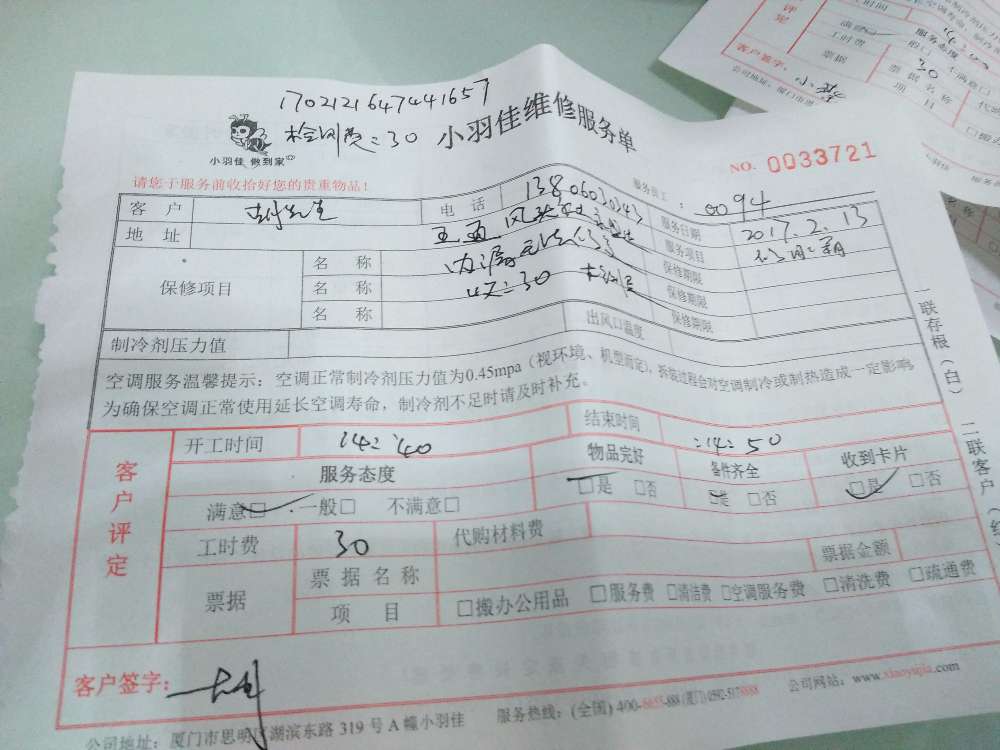 1702121647441657
检测费=30
小羽佳维修服务单
小羽佳 做到家
NO. 0033721
请您于服务前收拾好您的贵重物品！
服务员工： 0094
客 户 电 话 13806030243 服务日期 2017.2.13
地 址 服务项目
保修项目 名 称 保修期限
名 称 =30 保修期限
名 称 保修期限
制冷剂压力值 出风口温度
空调服务温馨提示：空调正常制冷剂压力值为0.45mpa（视环境、机型而定），拆装过程会对空调制冷或制热造成一定影响
为确保空调正常使用延长空调寿命，制冷剂不足时请及时补充。
一联存根（白） 二联客户
客户评定
开工时间 14=40 结束时间 =14=50
服务态度 物品完好 备件齐全 收到卡片
满意□ 一般□ 不满意□ □是 □否 □是 □否 □是 □否
工时费 30 代购材料费
票据 票据名称 票据金额
项 目 □搬办公用品 □服务费 □清洁费 □空调服务费 □清洗费 □疏通费
客户签字：
公司地址：厦门市思明区湖滨东路 319 号 A 幢小羽佳 服务热线：(全国) 400-8655-888 (厦门) 0592-5178888 公司网站：www.xiaoyujia.com
评定
工时费
票据
30
票据名称
项 目
服务态度
不满意□
客户签字：
公司地址：厦门市思